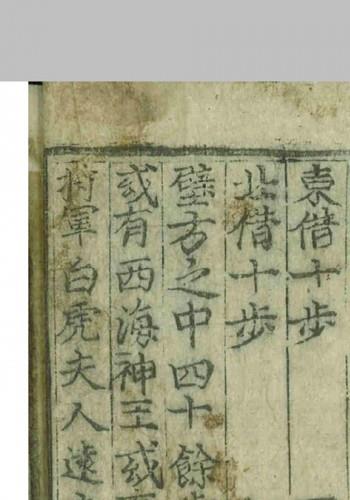 東借十步
北借十步
璧方之中四十餘
或有西海神王或
將軍白虎夫人遠